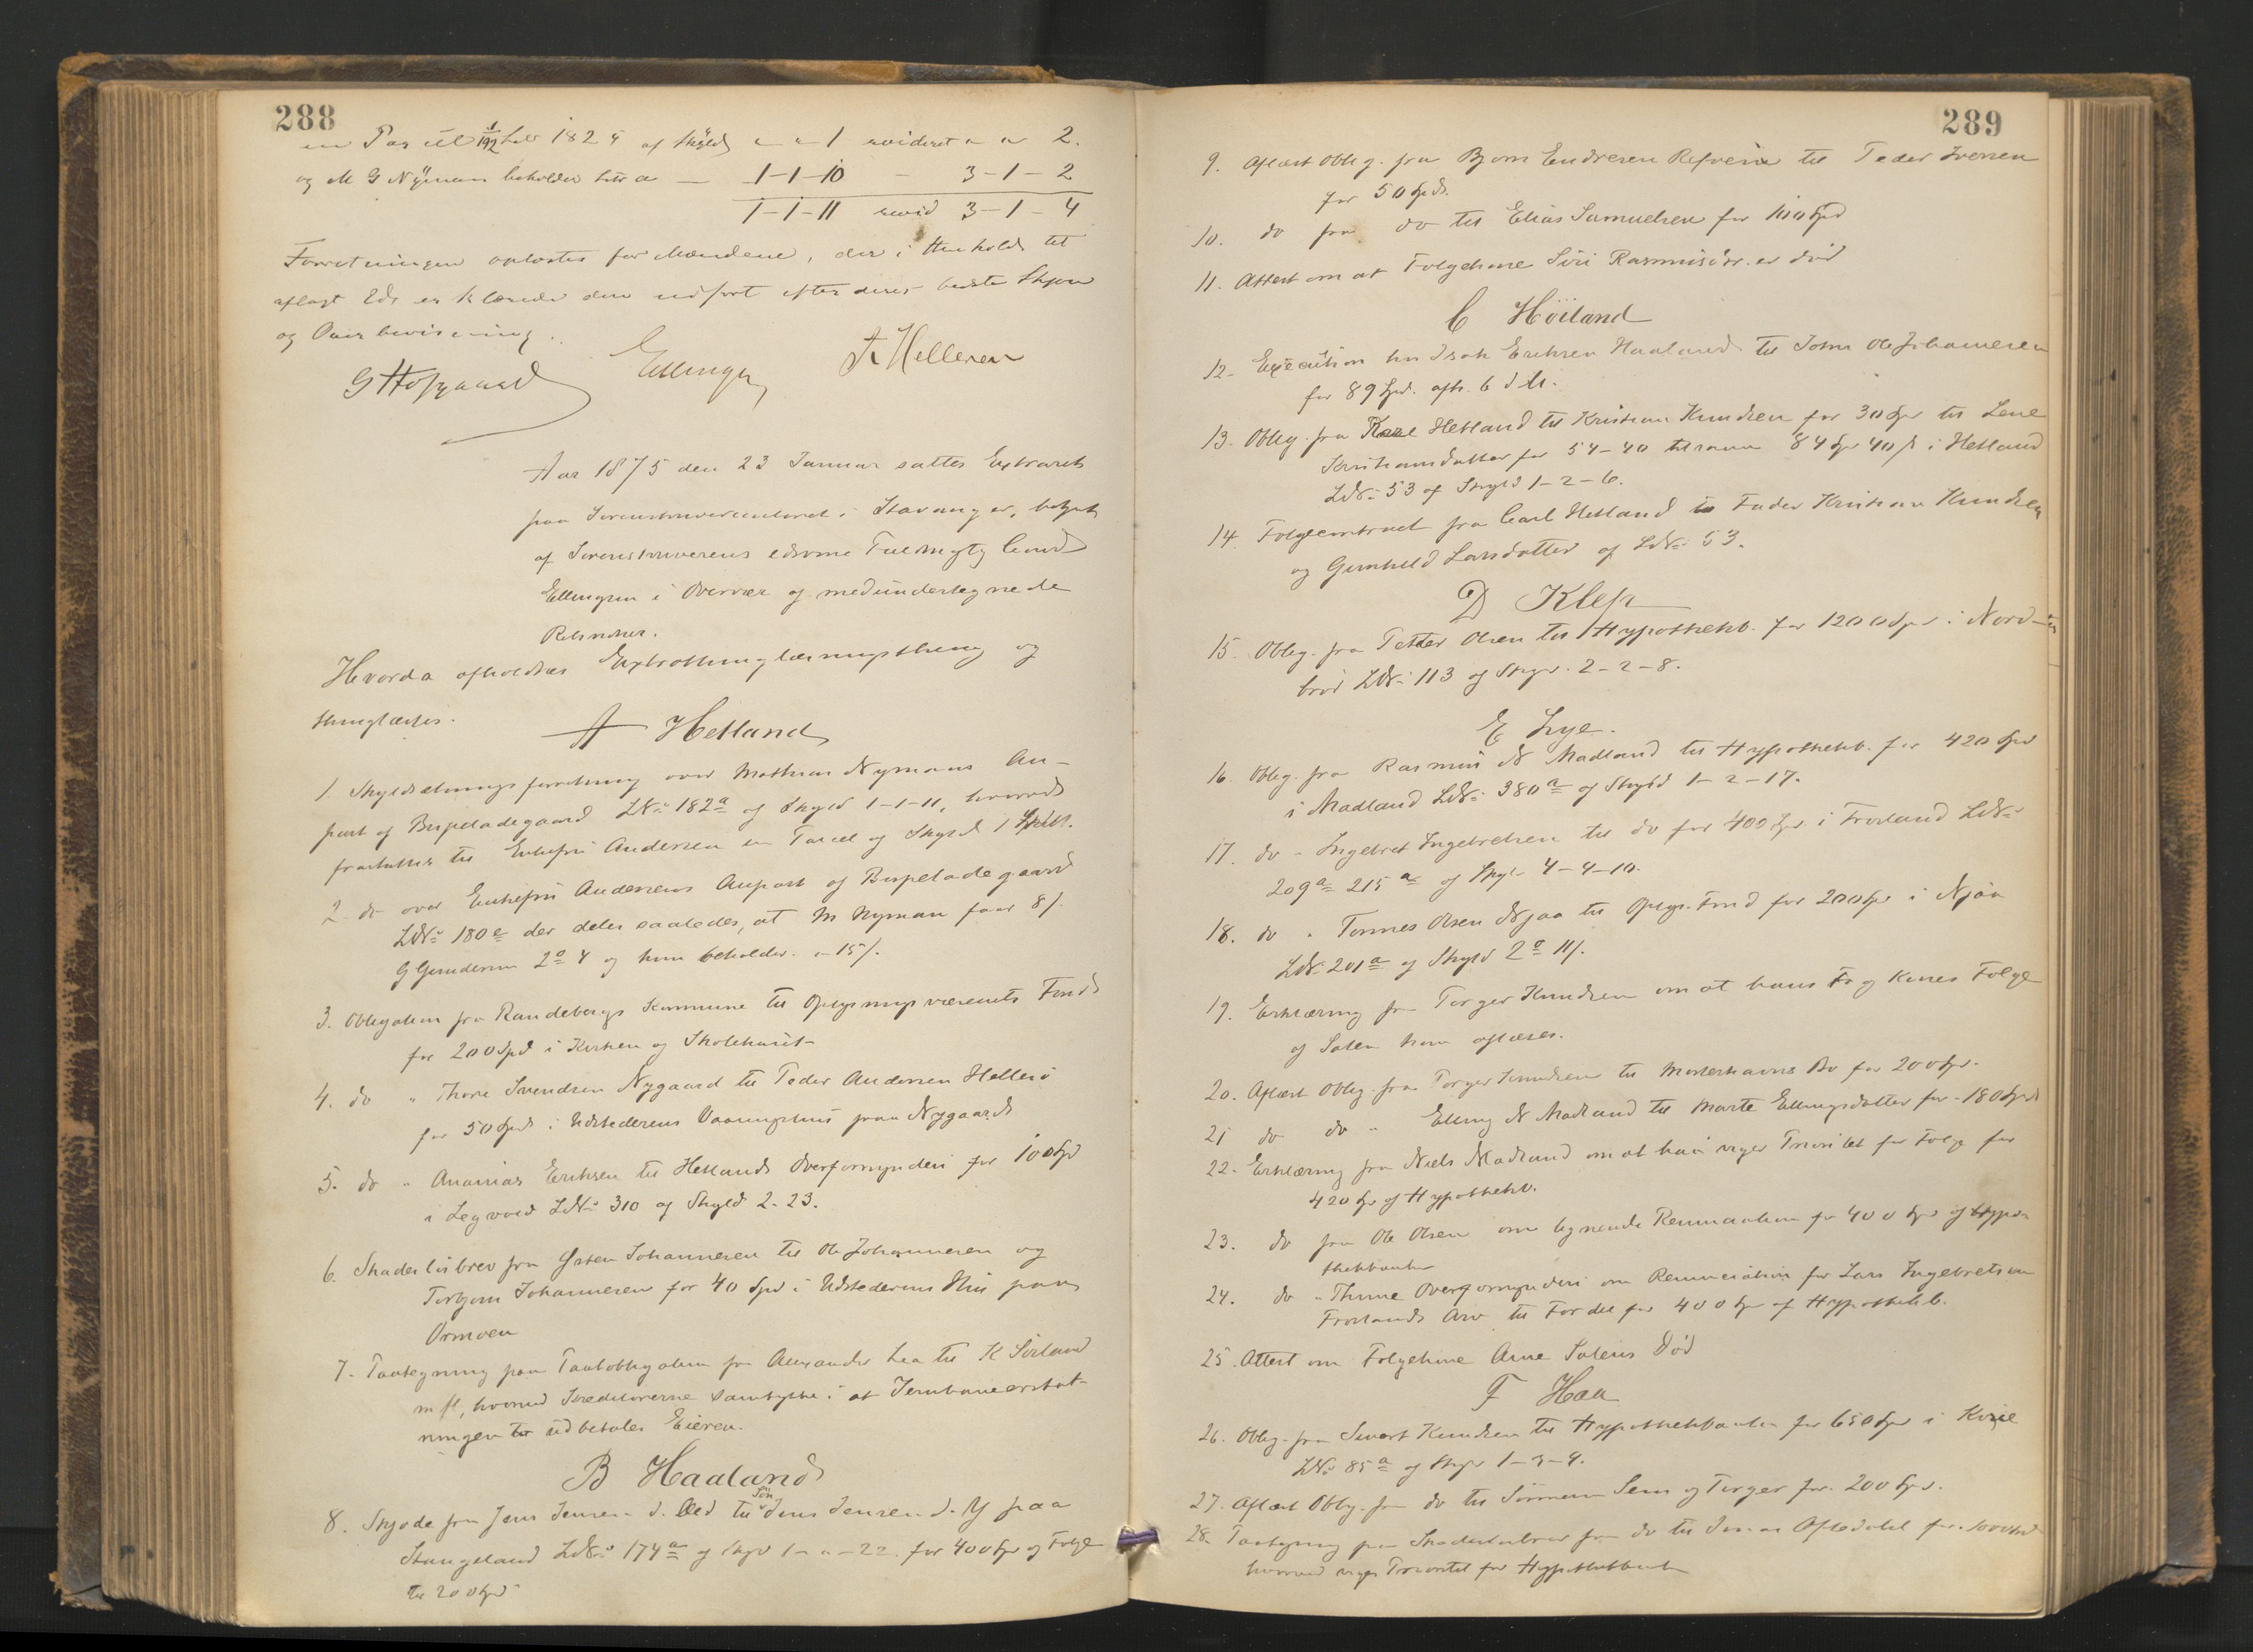 288
en Parcel 1/192 af Skyld " " 1 revideret " " 2.
og M G Nyman beholder — 1-1-10 — 3-1-2
1-1-11 revid 3-1-4
Forretningen oplæstes for Mændene, der i Henhold til
aflagt Ed erklærede den udført efter deres bedste Skjøn
og Overbevisning.
Ellingsen
Hellesen
Aar 1875 den 23 Januar sattes Extraret
paa Sorenskriverembedet i Stavanger, betjent
af Sorenskriverens edsvorne Fuldmægtig
Ellingsen i Overvær af medundertegnede
Retsvidner.
Hvorda afholdtes Extrathinglæsningsthing og
thinglæstes.
A Hetland
1 Skyldsætningsforretning over Mathias Nymans An-
part af Bispeladegaard LNr 182a af Skyld 1-1-11, hvorved
fraskilles til Enkefru Andersen en Parcel af Skyld 1 Skill.
2 do over Enkefru Andersens Anpart af Bispeladegaard
LNr 180 der deles saaledes, at M Nyman faar 8/.
G Gundersen 2 4 og hun beholder " 15/.
3. Obligation fra Randebergs Kommune til Oplysningsvæsenets Fond
for 200 Spd i Kirken og Skolehuset
4. do " Thore Svendsen Nygaard til Peder Andersen Hellesø
for 50 Spd i Udstederens Vaaningshus paa Nygaard
5. do " Ananias Eriksen til Hetlands Overformynderi for 100 Spd
i LNr 310 af Skyld 2-23.
6. Skadesløsbrev fra Johannesen til Ole Johannesen og
Torbjørn Johannesen for 40 Spd i Udstederens Hus paa
Ormøen
7. Paategning paa Pantobligation fra Alexander Lea til K Sørland
m fl, hvorved Kreditorerne samtykke i at Jernbaneerstat-
ningen udbetales Eieren.
B Haaland
8. Skjøde fra Jens Jensen d. Æld til Søn Jens Jensen d. Y paa
Stangeland LNr 174a af Skyld 1-"-22 for 400 Spd og Folge
til 200 Spd
289
9. Aflæst Oblig. fra Bjørn Endresen Refveim til Peder Iversen
for 50 Spd.
10. do fra do til Elias Samuelsen for 100 Spd
11. Attest om at Folgekone Siri Rasmusdtr. er død
C Høiland
12. Execution hos Isak Eriksen Haaland til John Ole Johannesen
for 89 Spd. afh. 6 d M.
13. Oblig. fra Karl Hetland til Kristian Knudsen for 30 Spd til Lene
Kristiansdatter for 54-40 tilsamm 84 Spd 40 s i Hetland
LNr 53 af Skyld 1-2-6.
14. Folgecontract fra Carl Hetland til Fader Kristian Knudsen
og Gunhild Larsdatter af LNr 53.
D Klep
15. Oblig. fra Petter Olsen til Hypothekb. for 1200 Spd i Nord-
brød LNr 113 af Skyld 2-2-8.
E Lye.
16. Oblig. fra Rasmus N Madland til Hypothekb. for 420 Spd
i Madland LNr 380a af Skyld 1-2-17.
17. do " Ingebret Ingebretsen til do for 400 Spd i Frøiland LNr
209a 215a af Skyld 4-4-10.
18. do " Tønnes Olsen Njaa til Oplys. Fond for 200 Spd i Njaa
LNr 201a af Skyld 2 11/.
19. Erklæring fra Torger Knudsen om at hans og Kones Folge
af Salen kan aflæses.
20. Aflæst Oblig. fra Torger Knudsen til Bo for 200 Spd.
21 do do " Elling N Madland til Marte Ellingsdatter for 180 Spd
22. Erklæring fra Niels Madland om at han viger Prioritet for Folge for
420 Spd af Hypothekb.
23. do fra Ole Olsen om lignende Renunciation for 400 Spd af Hypo-
thekbanken
24. do " Thime Overformynderi om Renunciation for Lars Ingebretsen
Frøilands Arv til Fordel for 400 Spd af Hypothekb.
25. Attest om Folgekone Anne Salens Død
F Haa
26. Oblig. fra Sivert Knudsen til Hypothekbanken for 650 Spd i
LNr 85a af Skyld 1-3-9.
27. Aflæst Oblig. fra do til Sønnerne og Torger for 200 Spd.
28. Paategning paa Skadesløsbrev fra do til Jonas Aftedahl for 1000 Spd
hvorved viges Prioritet for Hypothekbank